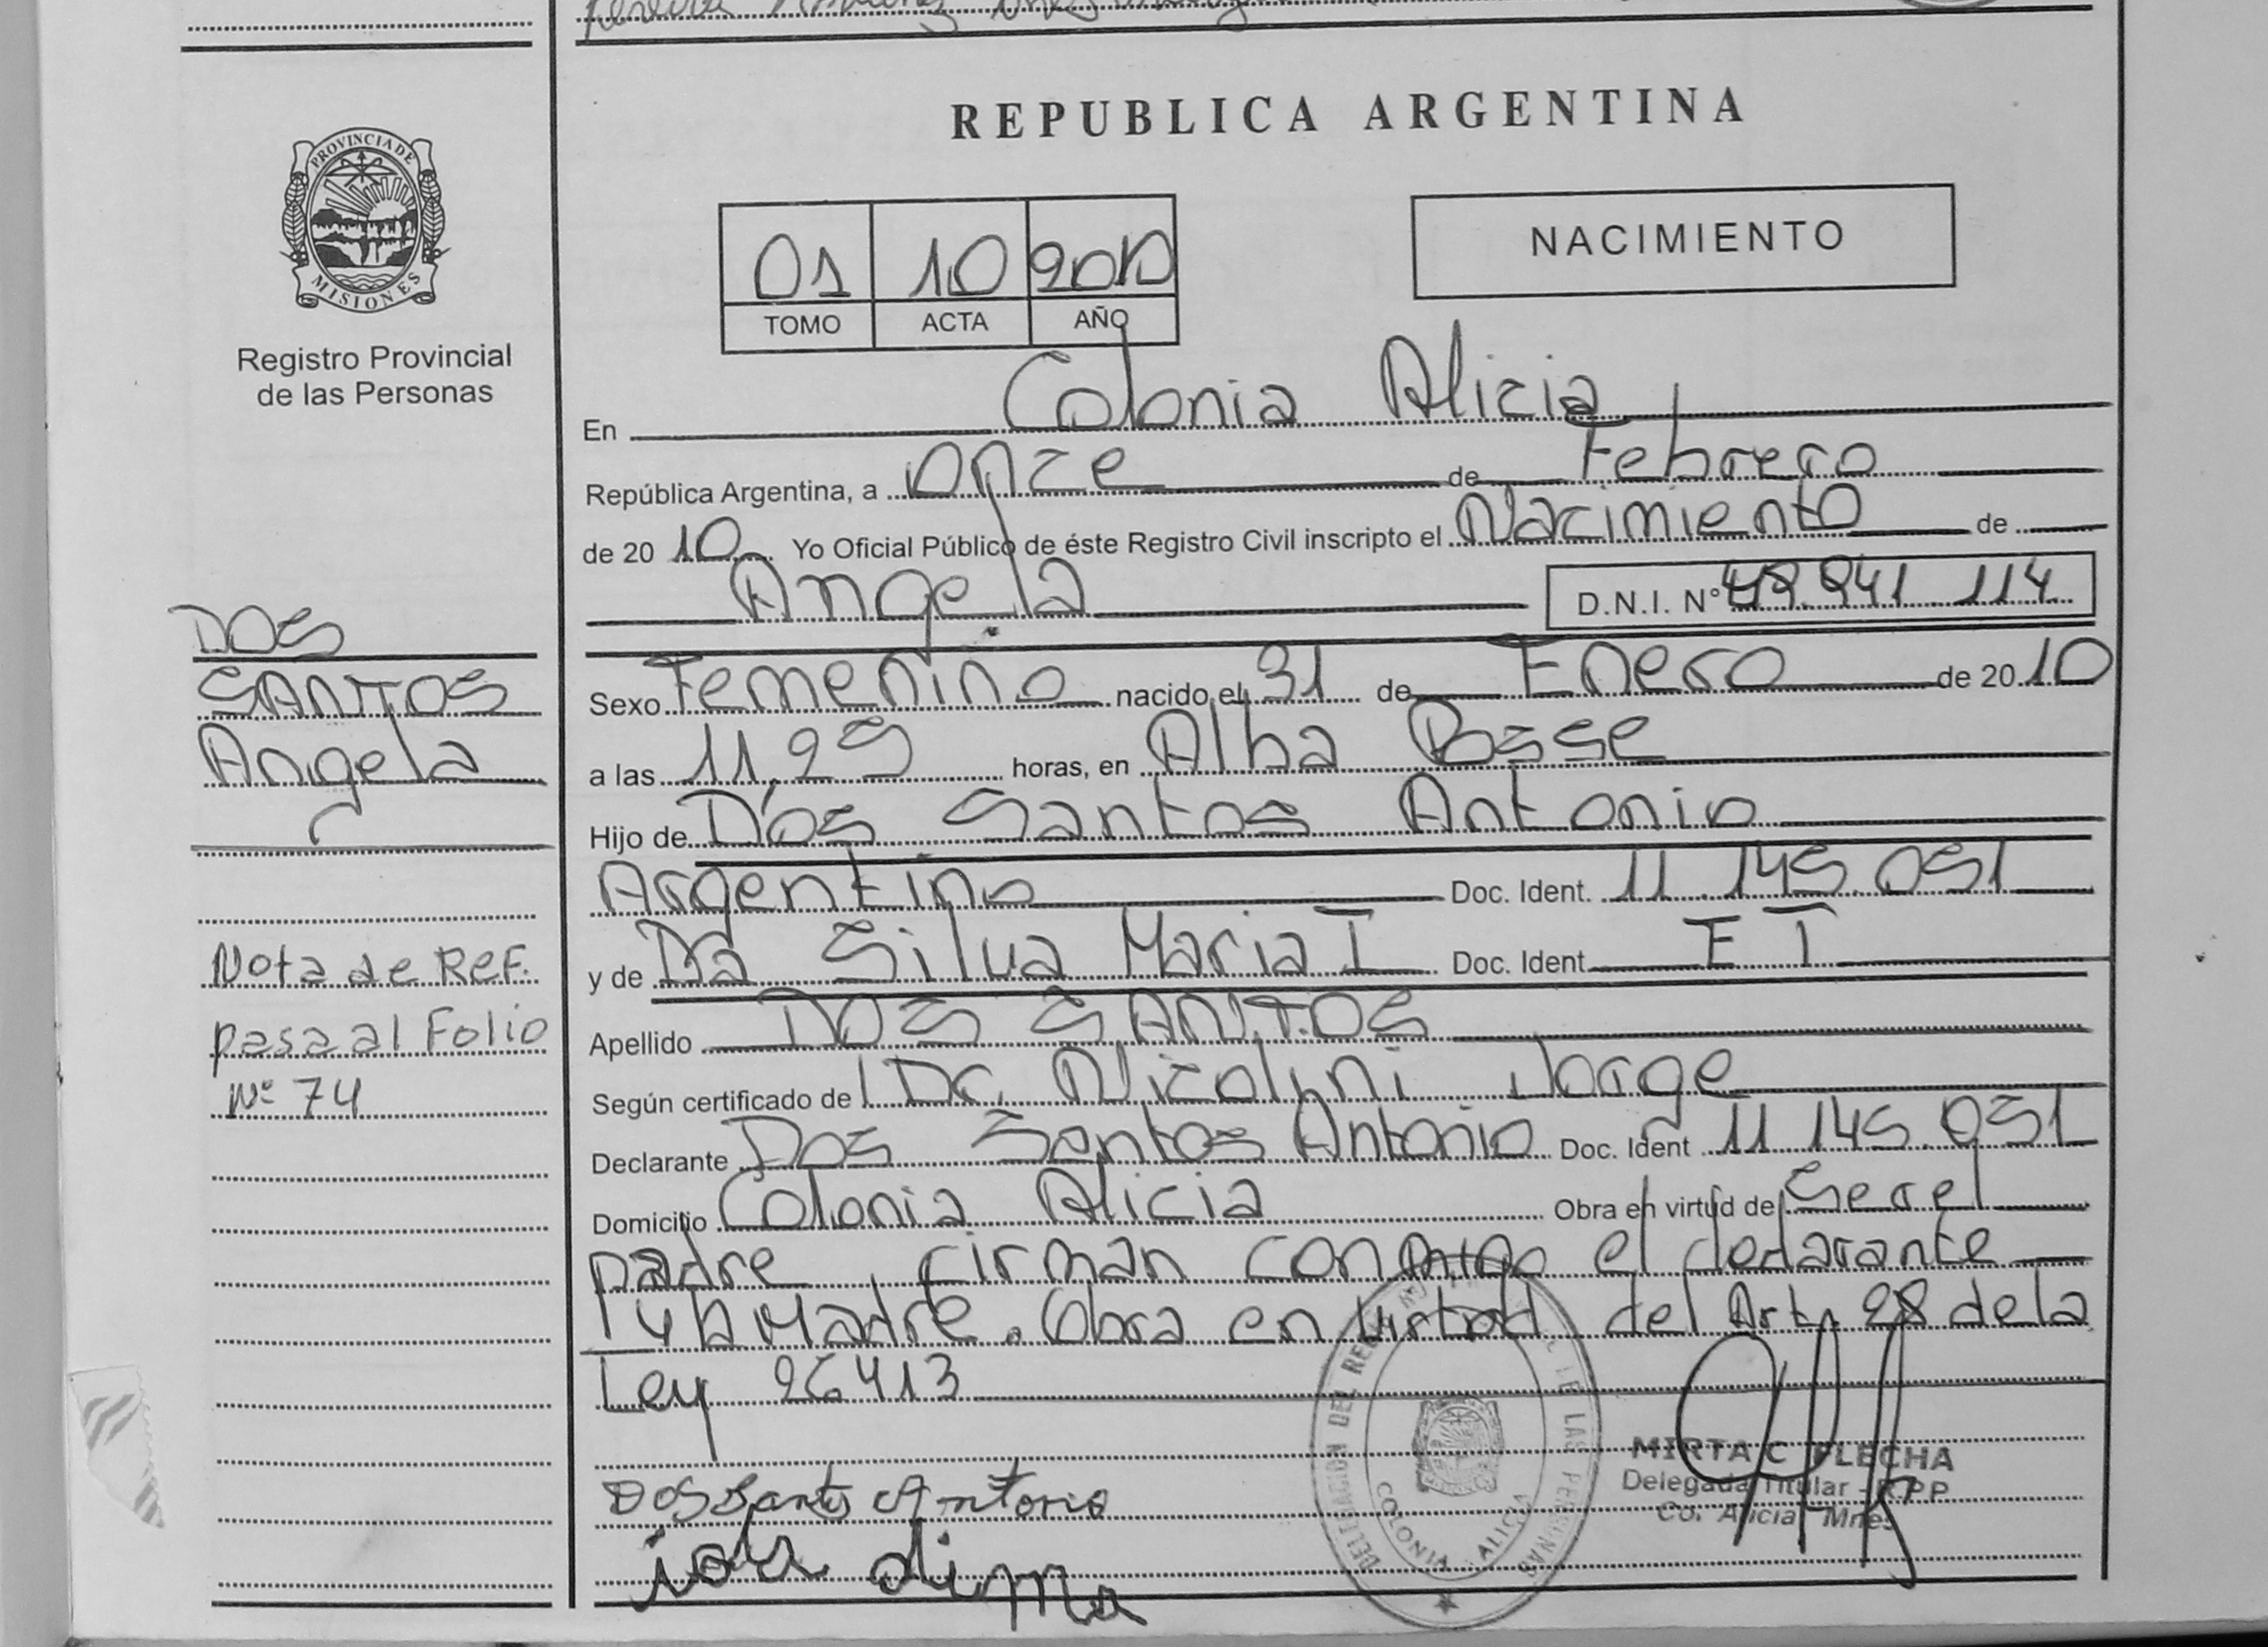 REPUBLICA ARGENTINA
PROVINCIA DE
MISIONES
Registro Provincial
de las Personas
01 10 2010
TOMO ACTA AÑO
NACIMIENTO
En Colonia Alicia
República Argentina, a once de Febrero
de 20 10 Yo Oficial Público de éste Registro Civil inscripto el Nacimiento de
Angela D.N.I. N°
DOS
SANTOS
Angela
Sexo Femenino nacido el 31 de Enero de 20 10
a las 11,25 horas, en Alba Posse
Hijo de Dos Santos Antonio
Argentino Doc. Ident. 11.145.051
y de Da Silva Maria I Doc. Ident E T
Apellido DOS SANTOS
Según certificado de Dr. Nicolini Jorge
Declarante Dos Santos Antonio Doc. Ident 11 145.051
Domicilio Colonia Alicia Obra en virtud de Ser el
padre, firman conmigo el declarante
y la Madre. Obra en virtud del Art. 28 de la
Ley 26413
Nota de REF.
pasa al Folio
Nº 74
DELEGACION DEL REG DE LAS PERSONAS
COLONIA ALICIA
MIRTA C FLECHA
Delegada Titular - RPP
Co. Alicia - Mnes
Dos Santos Antonio